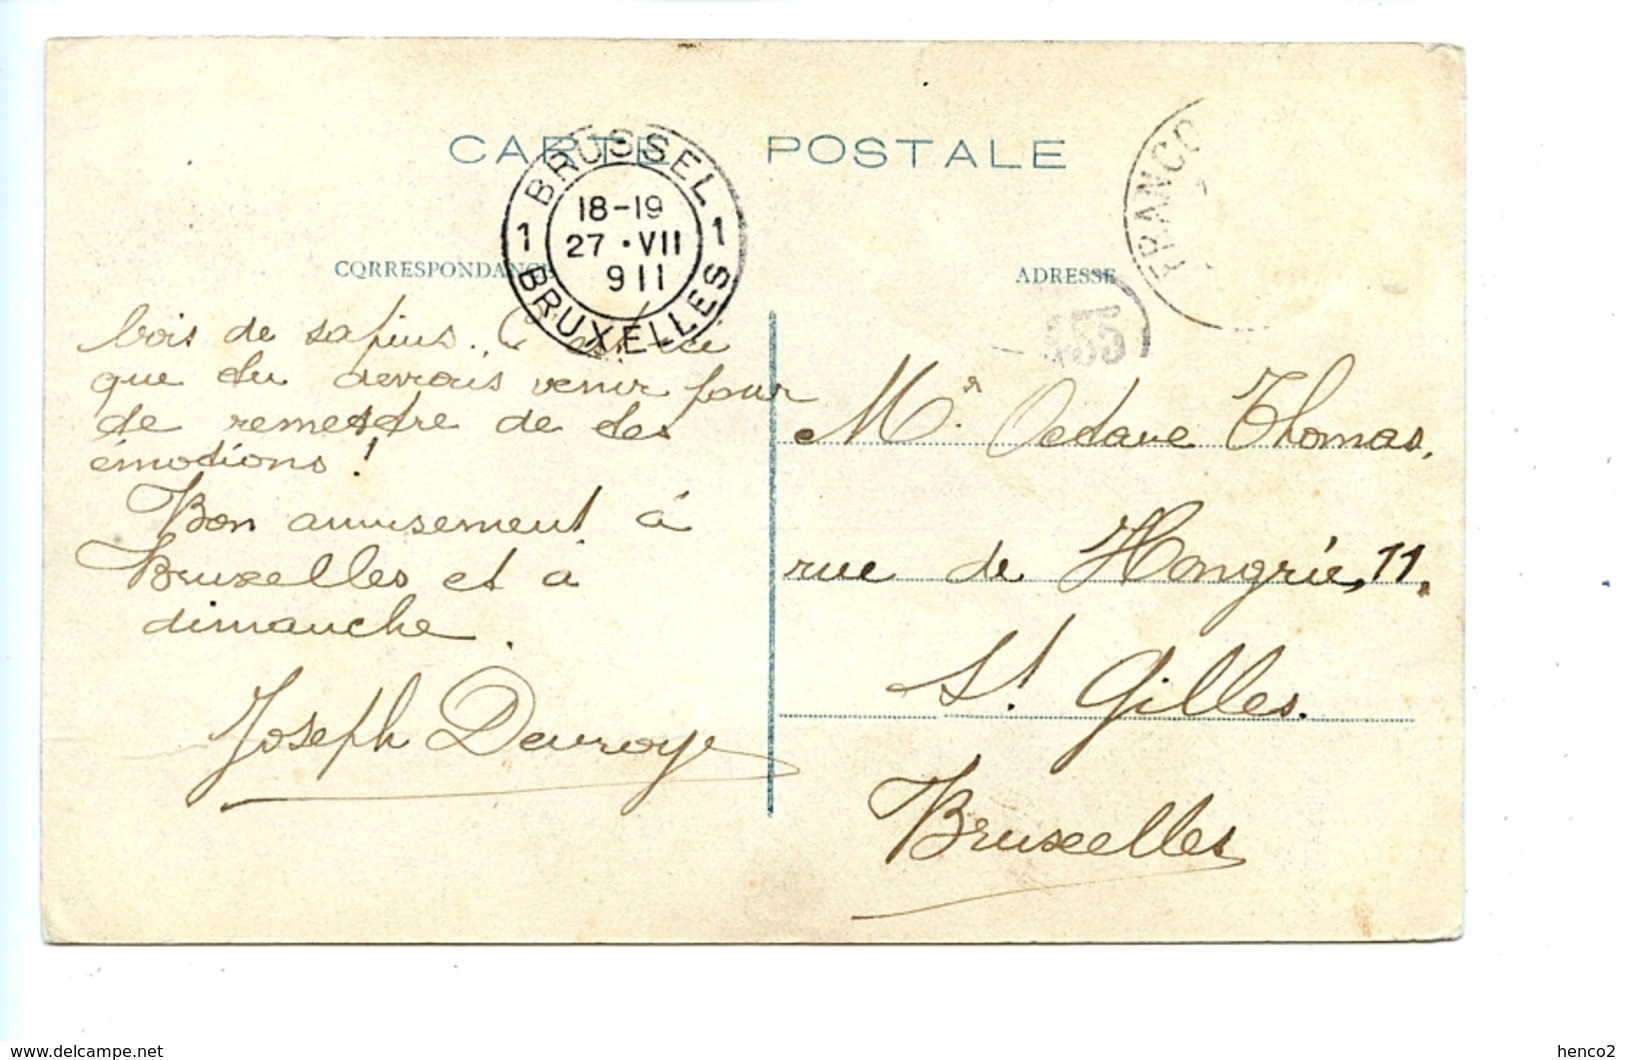 CARTE POSTALE
BRUSSEL
1 18-19 1
27 • VII
911
BRUXELLES
FRANCO
155
CORRESPONDANCE
ADRESSE
bois de sapins. C'est ici
que tu devrais venir pour
te remettre de tes
émotions !
Bon amusement à
Bruxelles et à
dimanche.
Joseph Devroye
Mr. Octave Thomas,
rue de Hongrie, 11,
St Gilles.
Bruxelles
delcampe.net
henco2